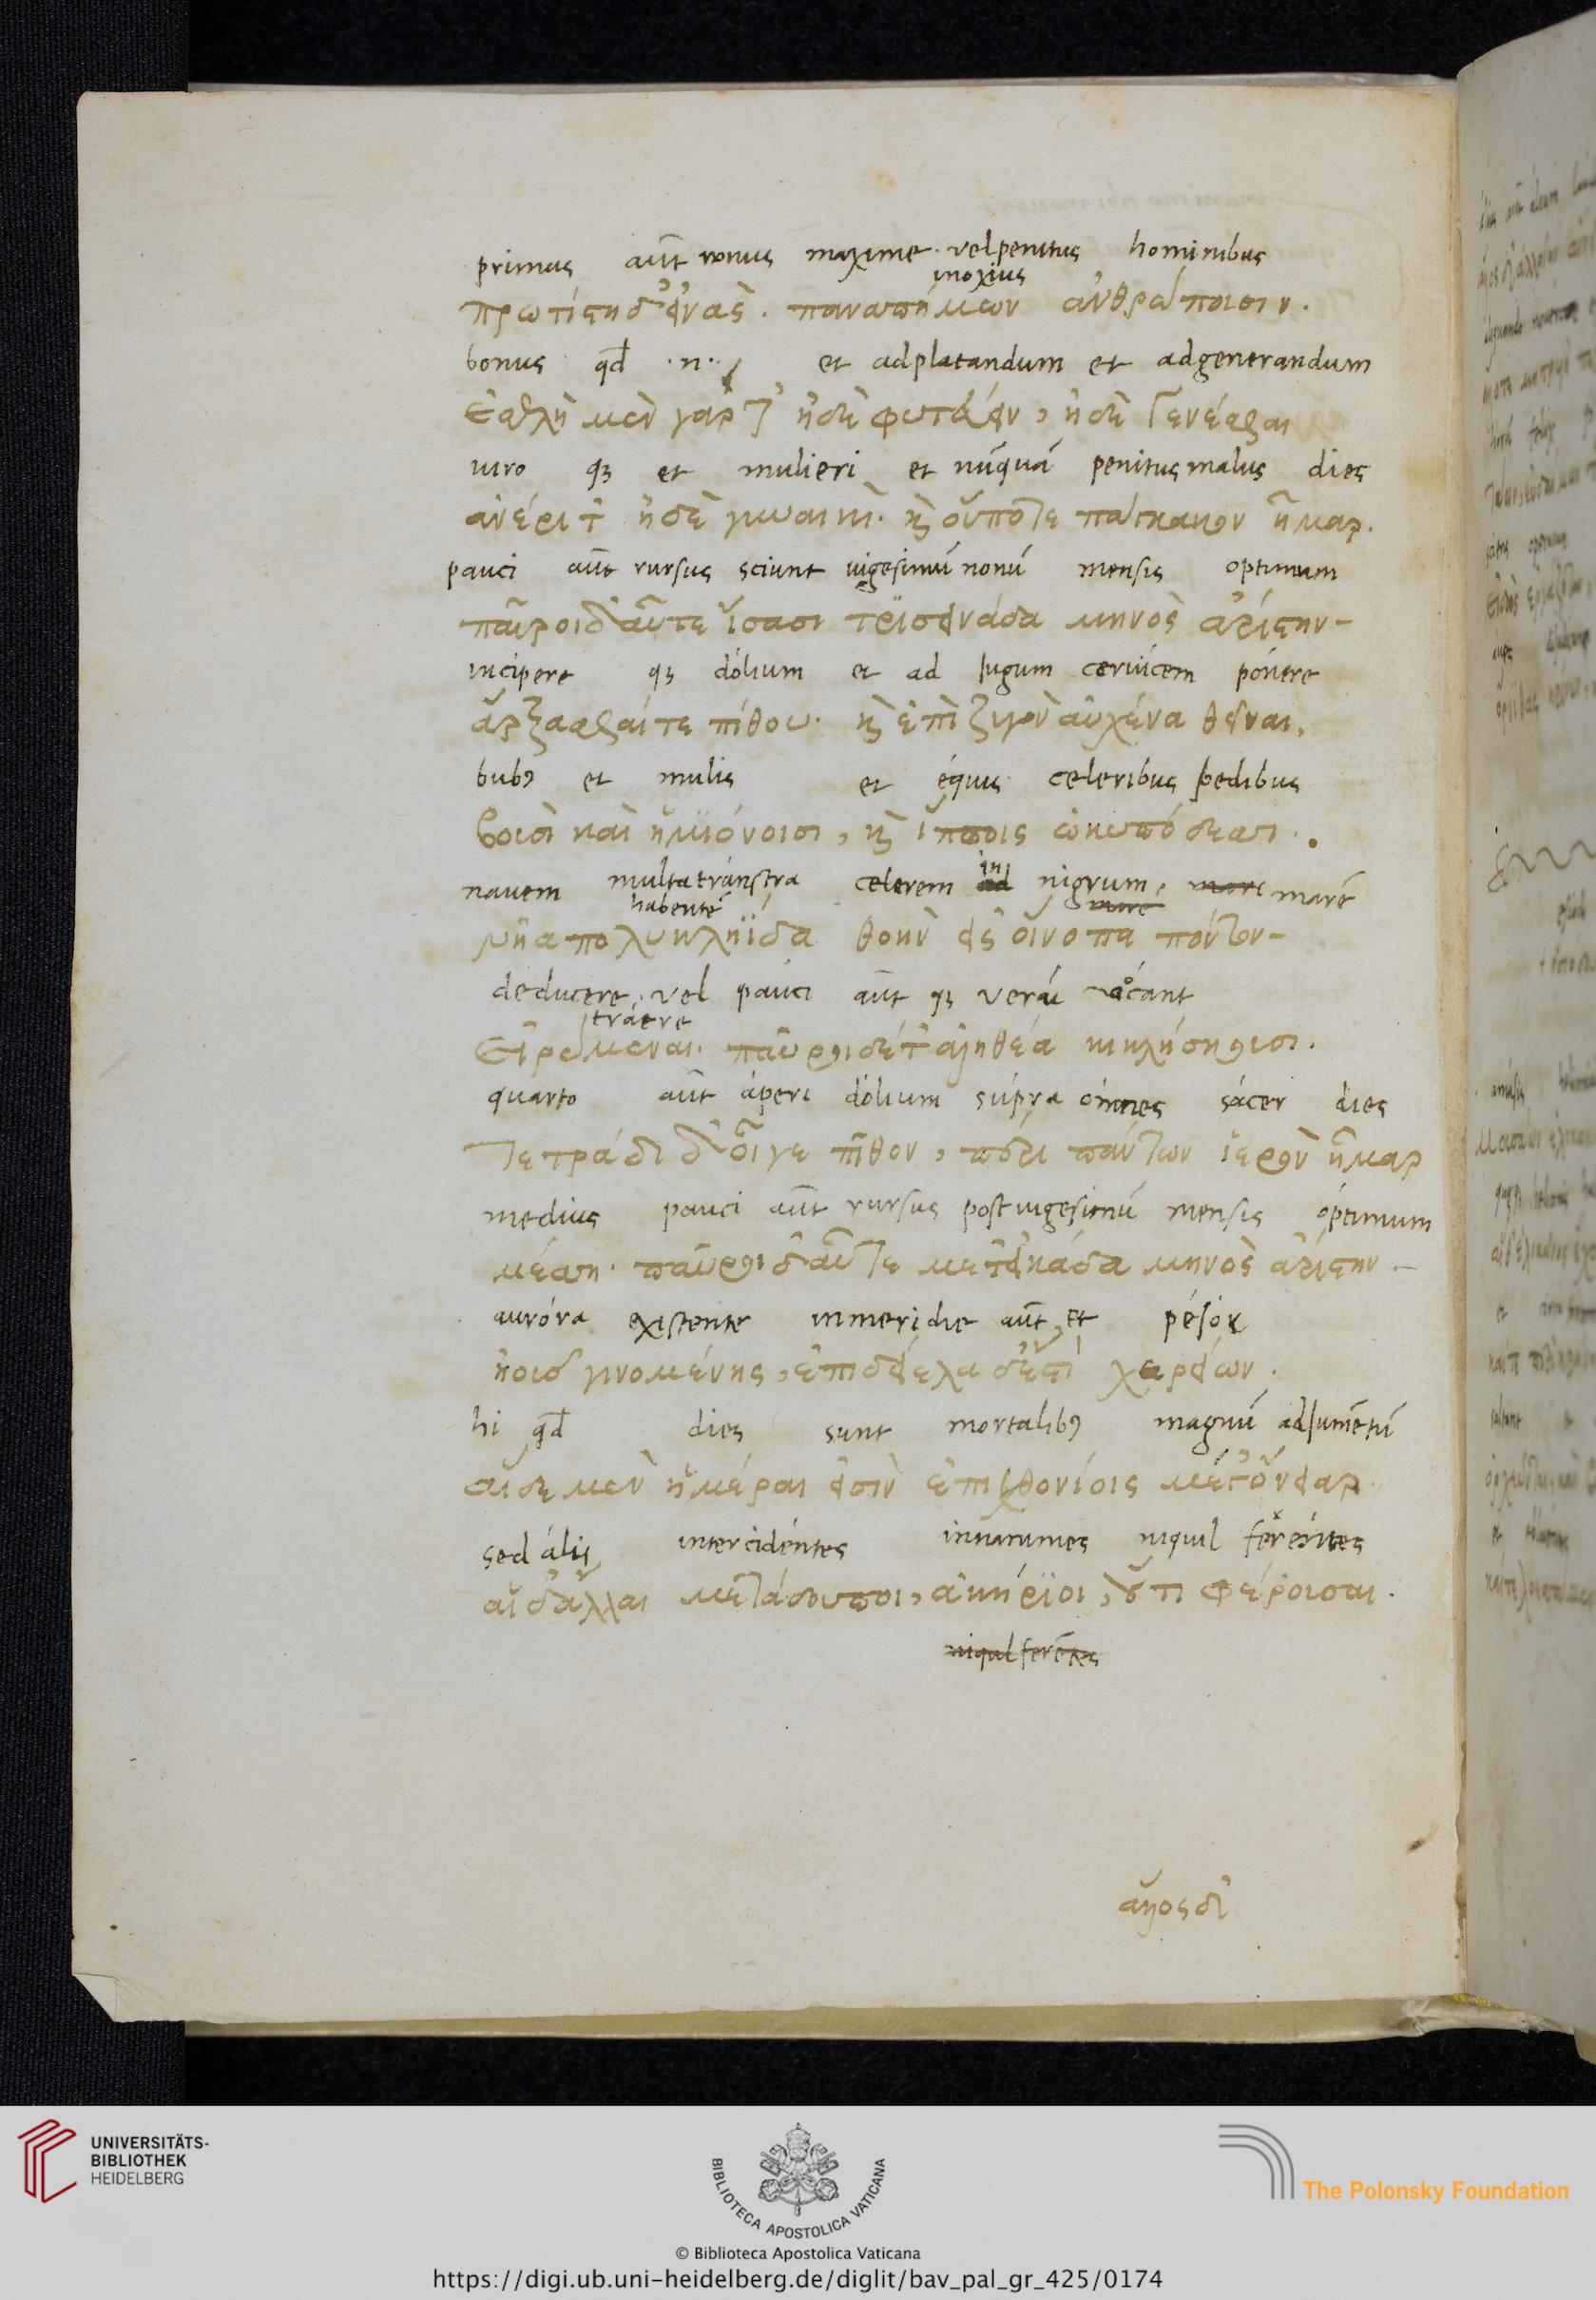 primus aūt nonus maxime. vel penitus hominibus
inoxius
πρωτίστη δ' εἰνὰς. παναπήμων ἀνθρώποισιν.
bonus qd̄ .n. et ad platandum et ad generandum
ἐσθλὴ μὲν γάρ τ' ἠδὲ φυτευέμεν, ἠδὲ γενέσθαι
viro qꝫ et mulieri et nūquā penitus malus dies
ἀνέρι τ' ἠδὲ γυναικὶ. καὶ οὔποτε πάγκακον ἦμαρ.
pauci aūt rursus sciunt vigesimū nonū mensis optimum
παῦροι δ' αὖτε ἴσασι τρισεινάδα μηνὸς ἀρίστην-
incipere qꝫ dólium et ad jugum cervícem pónere
ἄρξασθαί τε πίθου. καὶ ἐπὶ ζυγὸν αὐχένα θεῖναι.
bubꝰ et mulis et équis celeribus pedibus
βουσὶ καὶ ἡμιόνοισι, καὶ ἵπποις ὠκυπόδεσσι.
in
navem multa tránstra celerem ad nigrum, mare marē
habentē mare
νῆα πολυκλήϊδα θοὴν εἰς οἴνοπα πόντον-
deducere. vel páuci aūt qꝫ verái vócant
tráere
εἰρύμεναι. παῦροι δέ τ' ἀληθέα κικλήσκουσι.
quarto aūt áperi dólium súpra ómnes sácer dies
τετράδι δ' οἶγε πίθον, περὶ πάντων ἱερὸν ἦμαρ
medius pauci aūt rursus post vigesimū mensis óptimum
μέσση. παῦροι δ' αὖτε μετ' εἰκάδα μηνὸς ἀρίστην-
auróra existente in meridie aūt et
ἠοῦς γινομένης, ἐπιδείελα δ' ἐστὶ χερείων.
hi qd̄ dies sunt mortalibꝰ magnū adjumētū
αἵδε μὲν ἡμέραι εἰσὶν ἐπιχθονίοις μέγ' ὄνειαρ.
sed álii intercidéntes niquil feréntes
αἱ δ' ἄλλαι μετάδουποι, ἀκήριοι, οὔτι φέρουσαι.
niquil ferētes
ἄλλος δ'
UNIVERSITÄTS-
BIBLIOTHEK
HEIDELBERG
BIBLIOTECA APOSTOLICA VATICANA
The Polonsky Foundation
© Biblioteca Apostolica Vaticana
https://digi.ub.uni-heidelberg.de/diglit/bav_pal_gr_425/0174